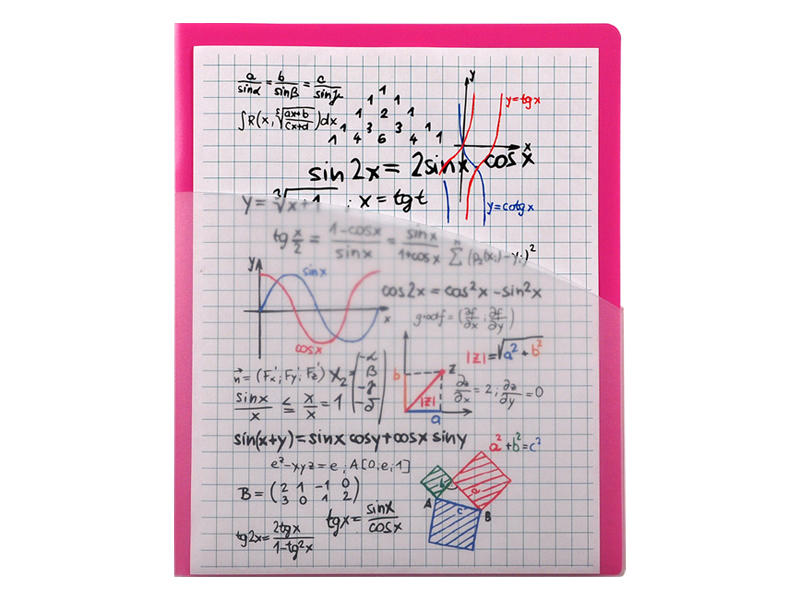 a/sinα = b/sinβ = c/sinγ
∫R(x, ⁵√((ax+b)/(cx+d)))dx
1
1 1
1 2 1
1 3 3 1
1 4 6 4 1
y
y=tgx
x
y=cotgx
sin2x = 2sinx cosx
y = ³√(x+1) ; x = tgt
tg x/2 = (1-cosx)/sinx = sinx/(1+cosx)
∑ (p₂(xᵢ)-yᵢ)²
y
sinx
x
cosx
cos2x = cos²x - sin²x
gradf = (∂f/∂x ; ∂f/∂y)
|z| = √(a² + b²)
b
z
|z|
a
∂z/∂x = 2 ; ∂z/∂y = 0
n⃗ = (Fx'; Fy'; Fz')
X₂ = (-α β -γ -δ)
sinx/x ≤ x/x = 1
sin(x+y) = sinx cosy + cosx siny
a² + b² = c²
e²-xyz = e ; A[0;e;1]
B = (2 1 -1 0
3 0 1 2)
b
a
A
c
B
tgx = sinx/cosx
tg2x = 2tgx/(1-tg²x)